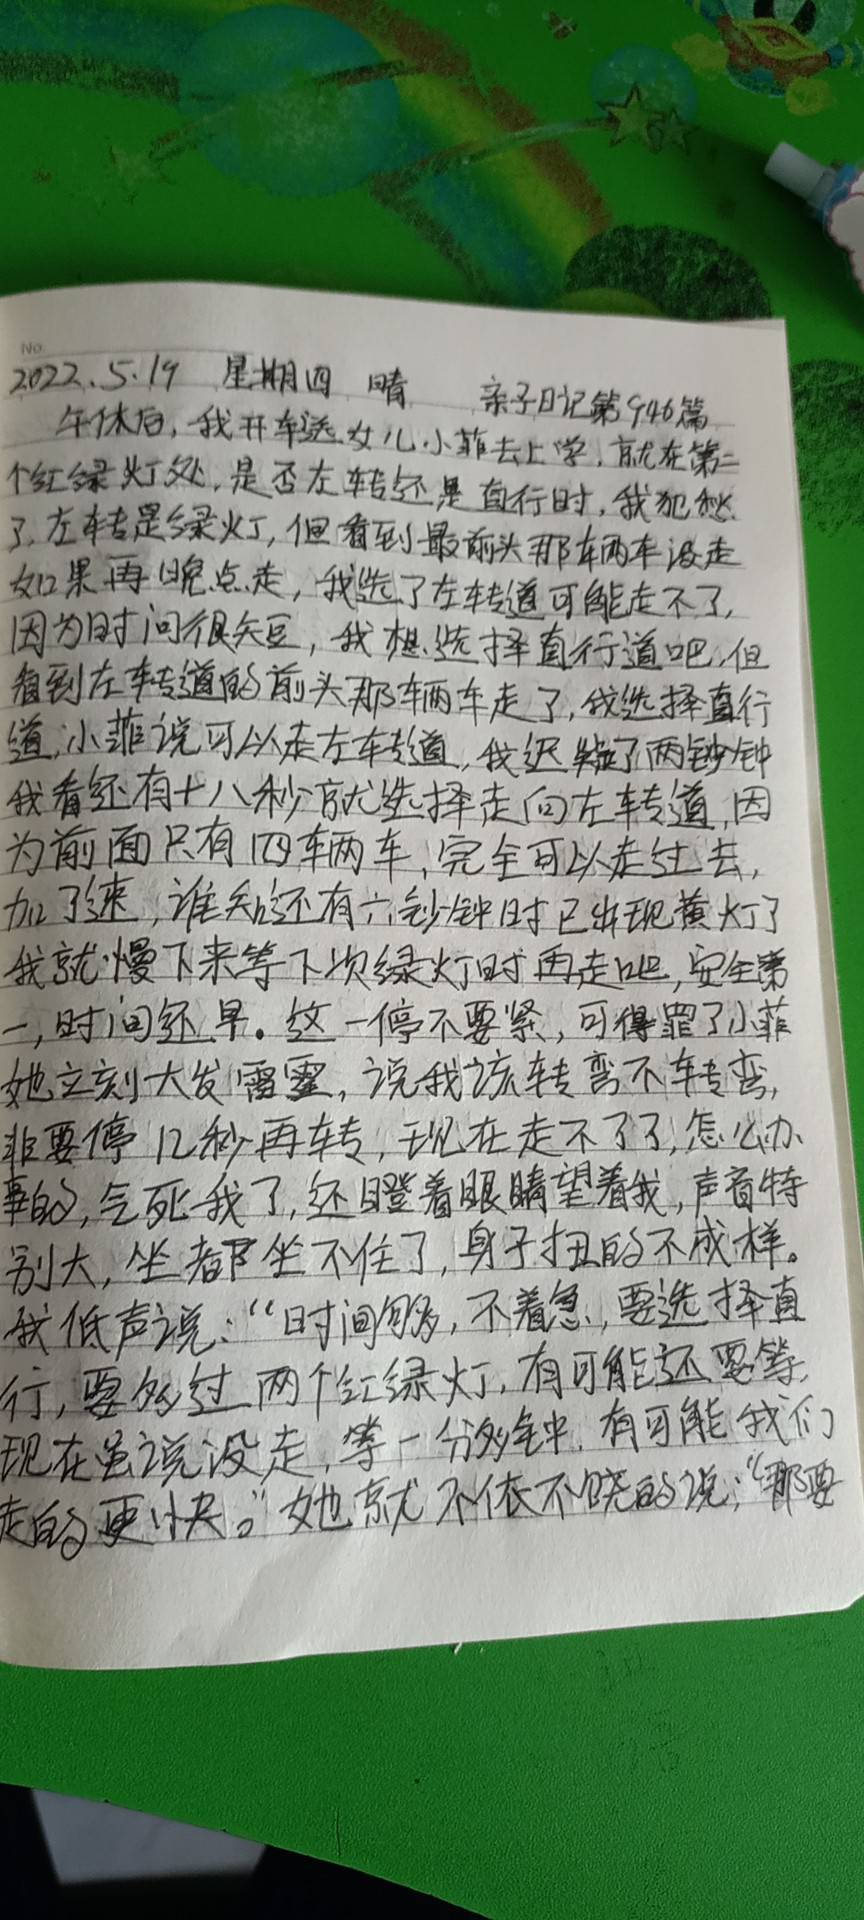 No.
2022.5.19 星期四 晴 亲子日记第946篇
午休后，我开车送女儿小菲去上学，就在第二
个红绿灯处，是否左转还是直行时，我犯愁
了，左转是绿灯，但看到最前头那辆车没走
如果再晚点走，我选了左转道可能走不了，
因为时间很短，我想选择直行道吧，但
看到左转道的前头那辆车走了，我选择直行
道，小菲说可以走左转道，我迟疑了两秒钟
我看还有十八秒就选择走向左转道，因
为前面只有四辆车，完全可以走过去，
加了速，谁知还有六秒钟时已出现黄灯了
我就慢下来等下次绿灯时再走吧，安全第
一，时间还早。这一停不要紧，可得罪了小菲
她立刻大发雷霆，说我该转弯不转弯，
非要停几秒再转，现在走不了了，怎么办
事的，气死我了，还瞪着眼睛望着我，声音特
别大，坐都坐不住了，身子扭的不成样。
我低声说：“时间够，不着急，要选择直
行，要多过两个红绿灯，有可能还要等，
现在虽说没走，等一分多钟，有可能我们
走的更快。”她就不依不饶的说：“那要